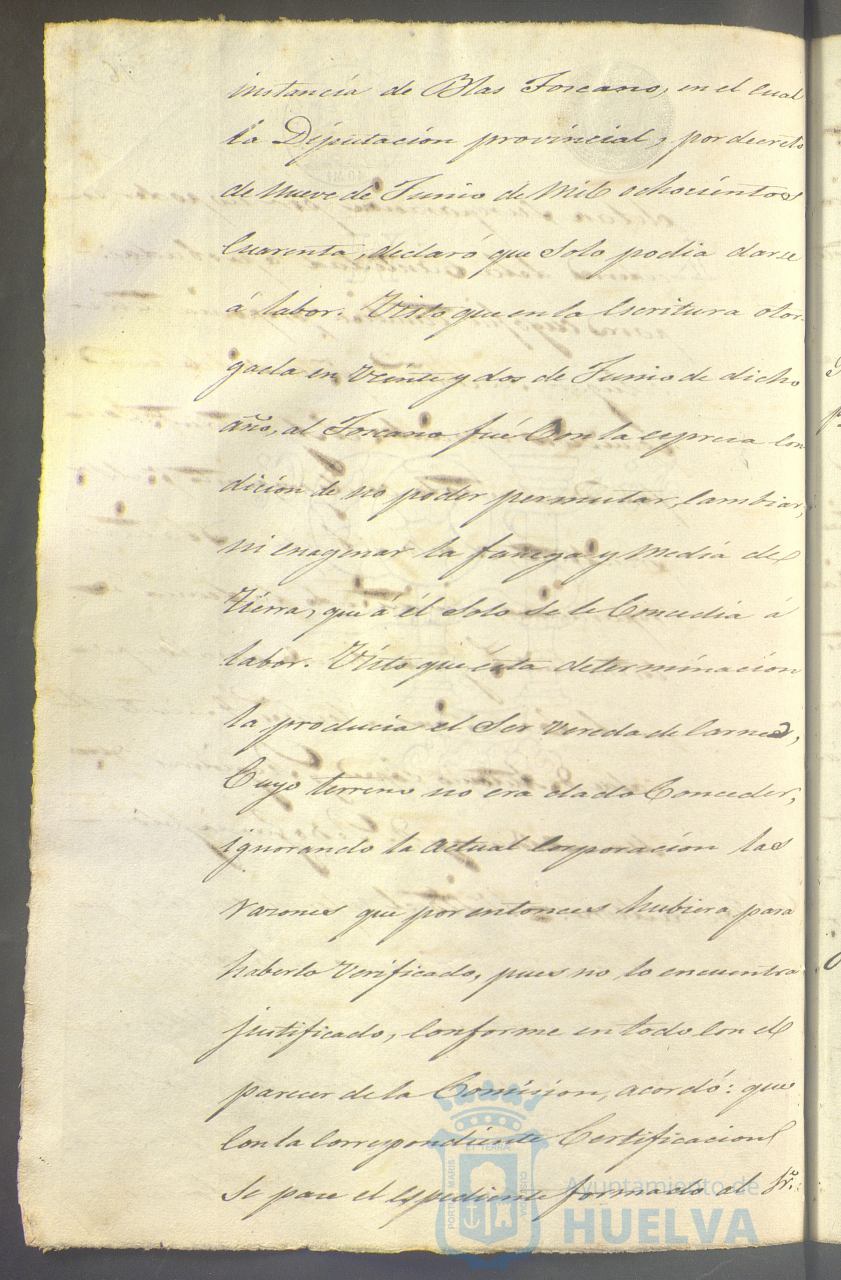 instancia de Blas Toscano, en el cual
la Diputacion provincial, por decreto
de Nueve de Junio de Mil ochocientos
Cuarenta, declaró que Solo podia darse
á labor. Visto que en la Escritura otor-
gada en Veinte y dos de Junio de dicho
año, al Toscano fué Con la expresa Con
dicion de no poder permutar, cambiar,
ni enagenar la fanega y media de
tierra, que á él Solo se le Concedia á
labor. Visto que ésta determinacion
la producia el Ser Vereda de Carnes,
Cuyo terreno no era dado Conceder,
ignorando la actual Corporacion las
razones que por entonces hubiera para
haberlo Verificado, pues no lo encuentra
justificado, Conforme en todo con el
parecer de la Comision, acordó: que
Con la Correspondiente Certificacion
Se pase el espediente formado al Sr.
Ayuntamiento de
HUELVA
PORTUS MARIS
ET TERRÆ
CUSTODIA